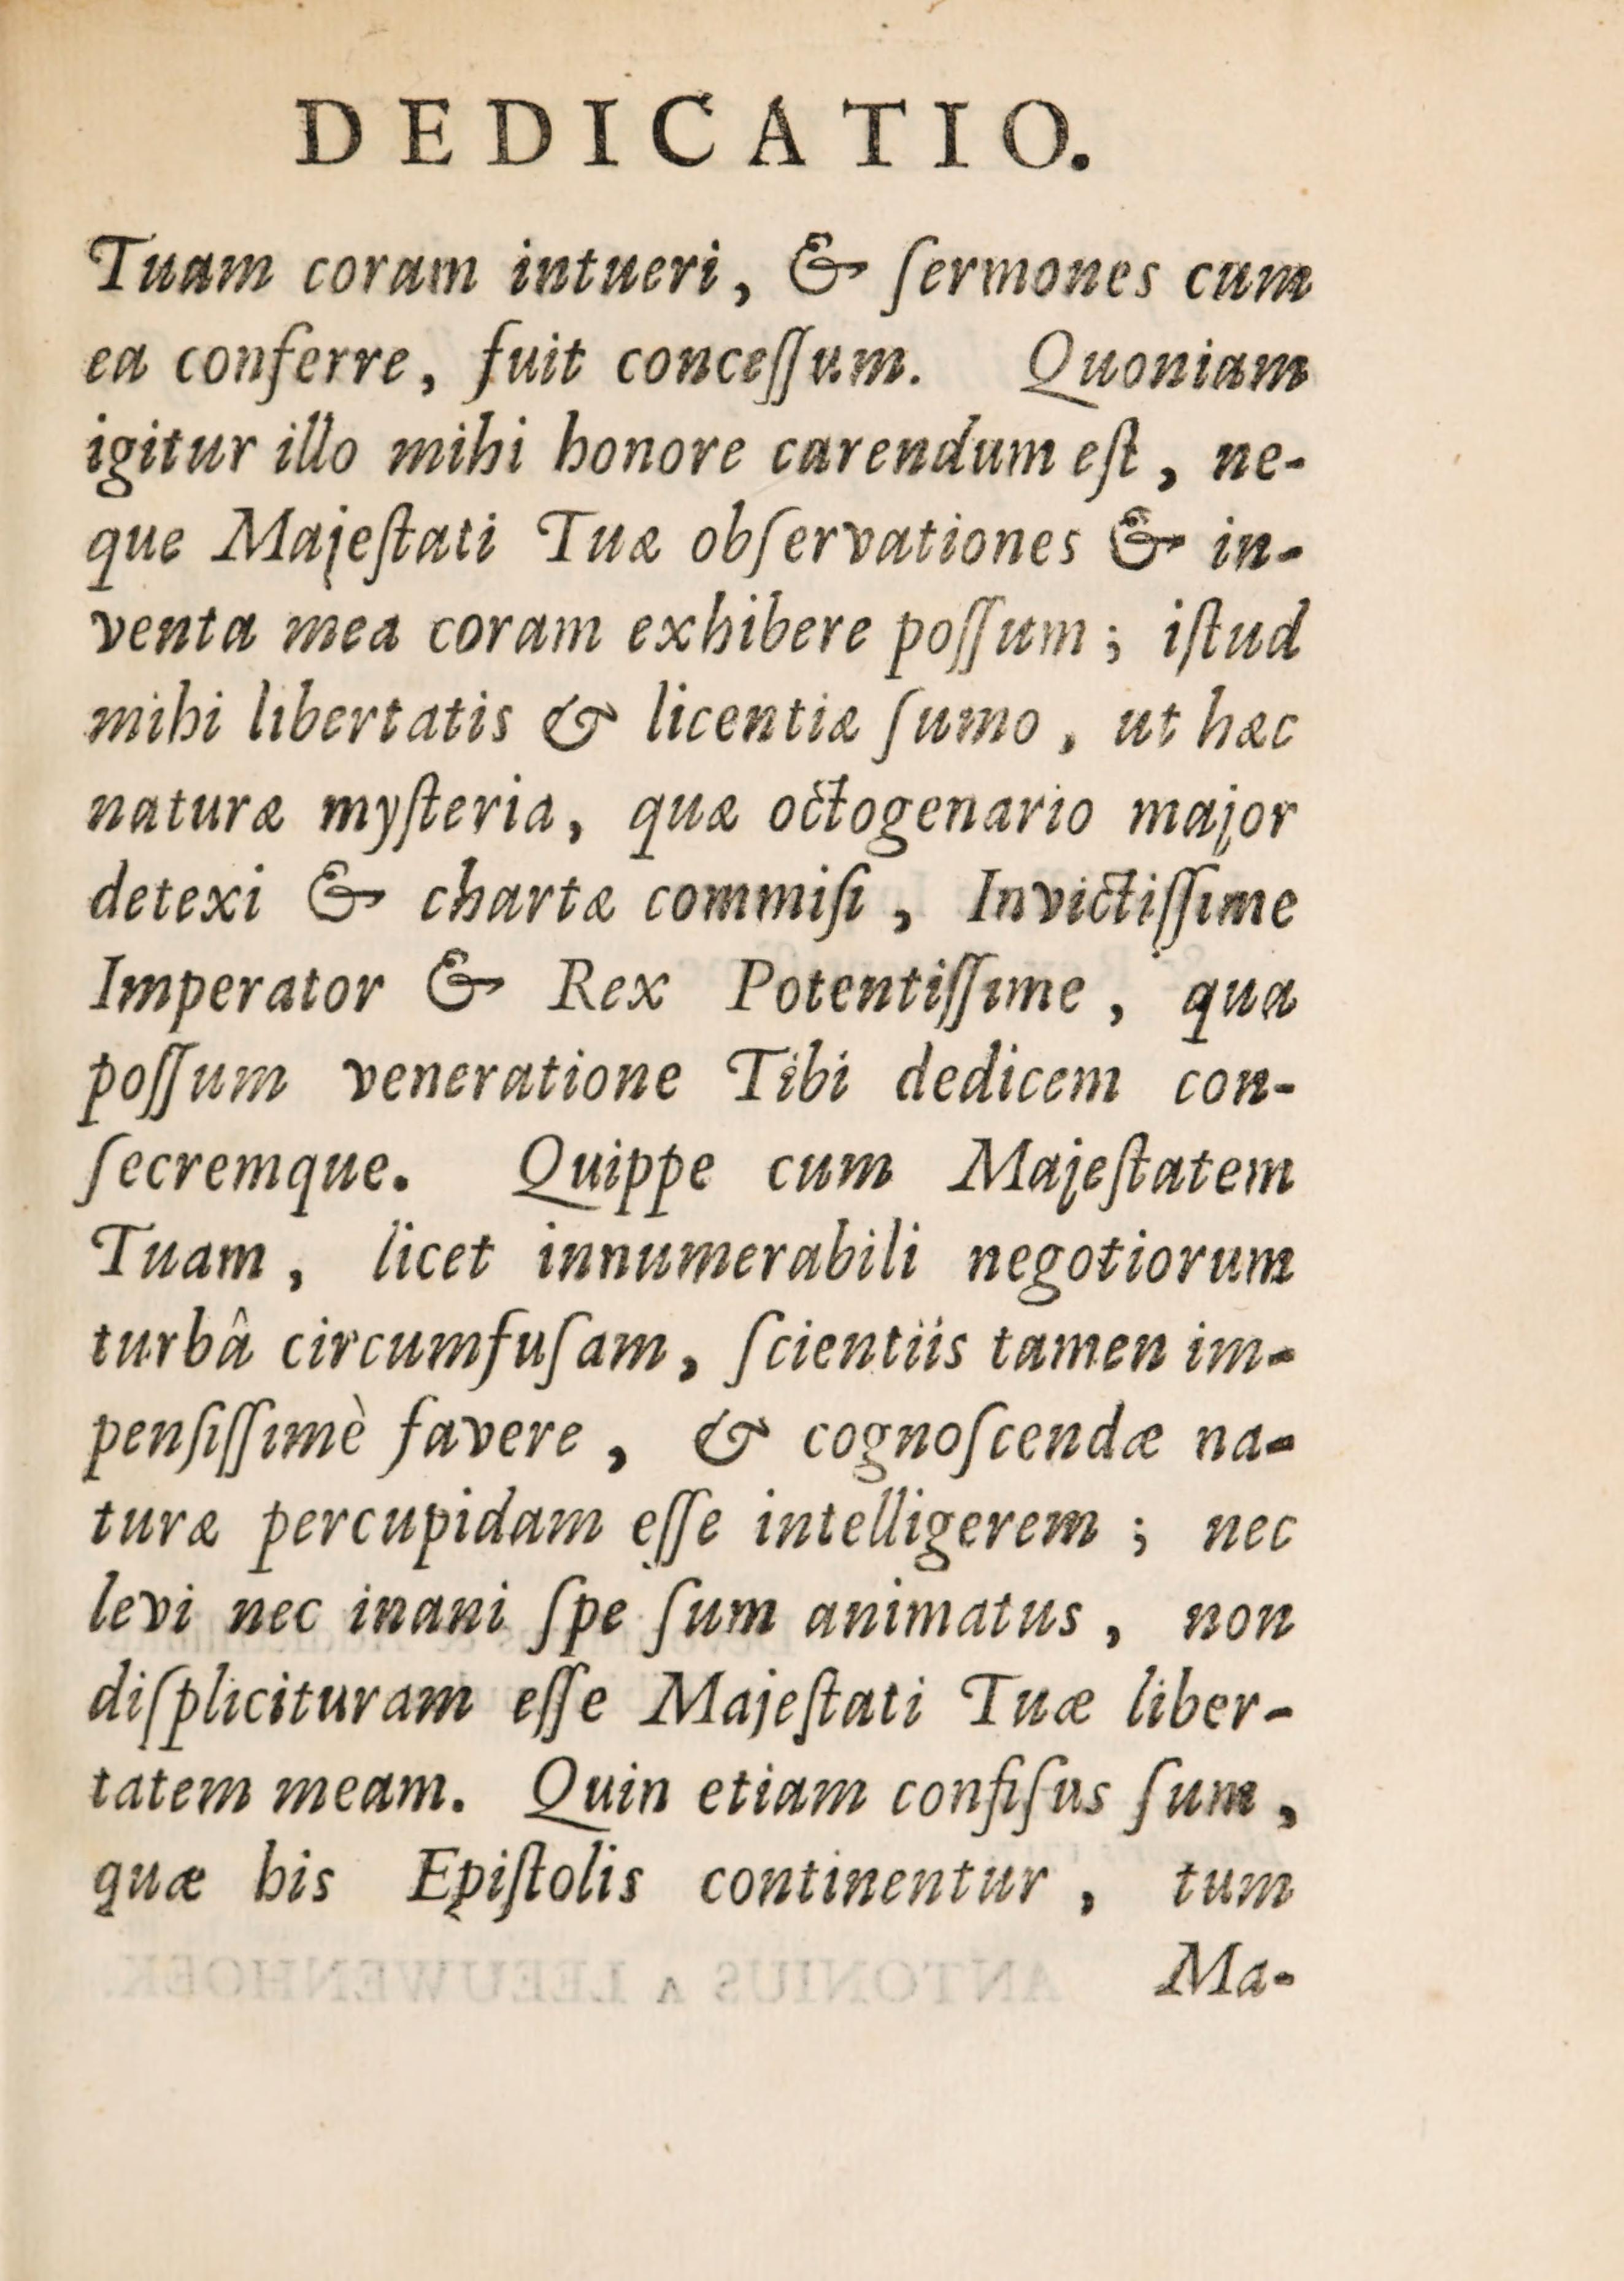 DEDICATIO.
Tuam coram intueri, & ſermones cum
ea conferre, fuit conceſſum. Quoniam
igitur illo mihi honore carendum eſt, ne-
que Majeſtati Tuæ obſervationes & in-
venta mea coram exhibere poſſum; iſtud
mihi libertatis & licentiæ ſumo, ut hæc
naturæ myſteria, quæ octogenario major
detexi & chartæ commiſi, Invictiſſime
Imperator & Rex Potentiſſime, qua
poſſum veneratione Tibi dedicem con-
ſecremque. Quippe cum Majeſtatem
Tuam, licet innumerabili negotiorum
turbâ circumfuſam, ſcientiis tamen im-
penſiſſimè favere, & cognoſcendæ na-
turæ percupidam eſſe intelligerem; nec
levi nec inani ſpe ſum animatus, non
diſplicituram eſſe Majeſtati Tuæ liber-
tatem meam. Quin etiam confiſus ſum,
quæ his Epiſtolis continentur, tum
Ma-
ANTONIUS A LEEUWENHOEK.